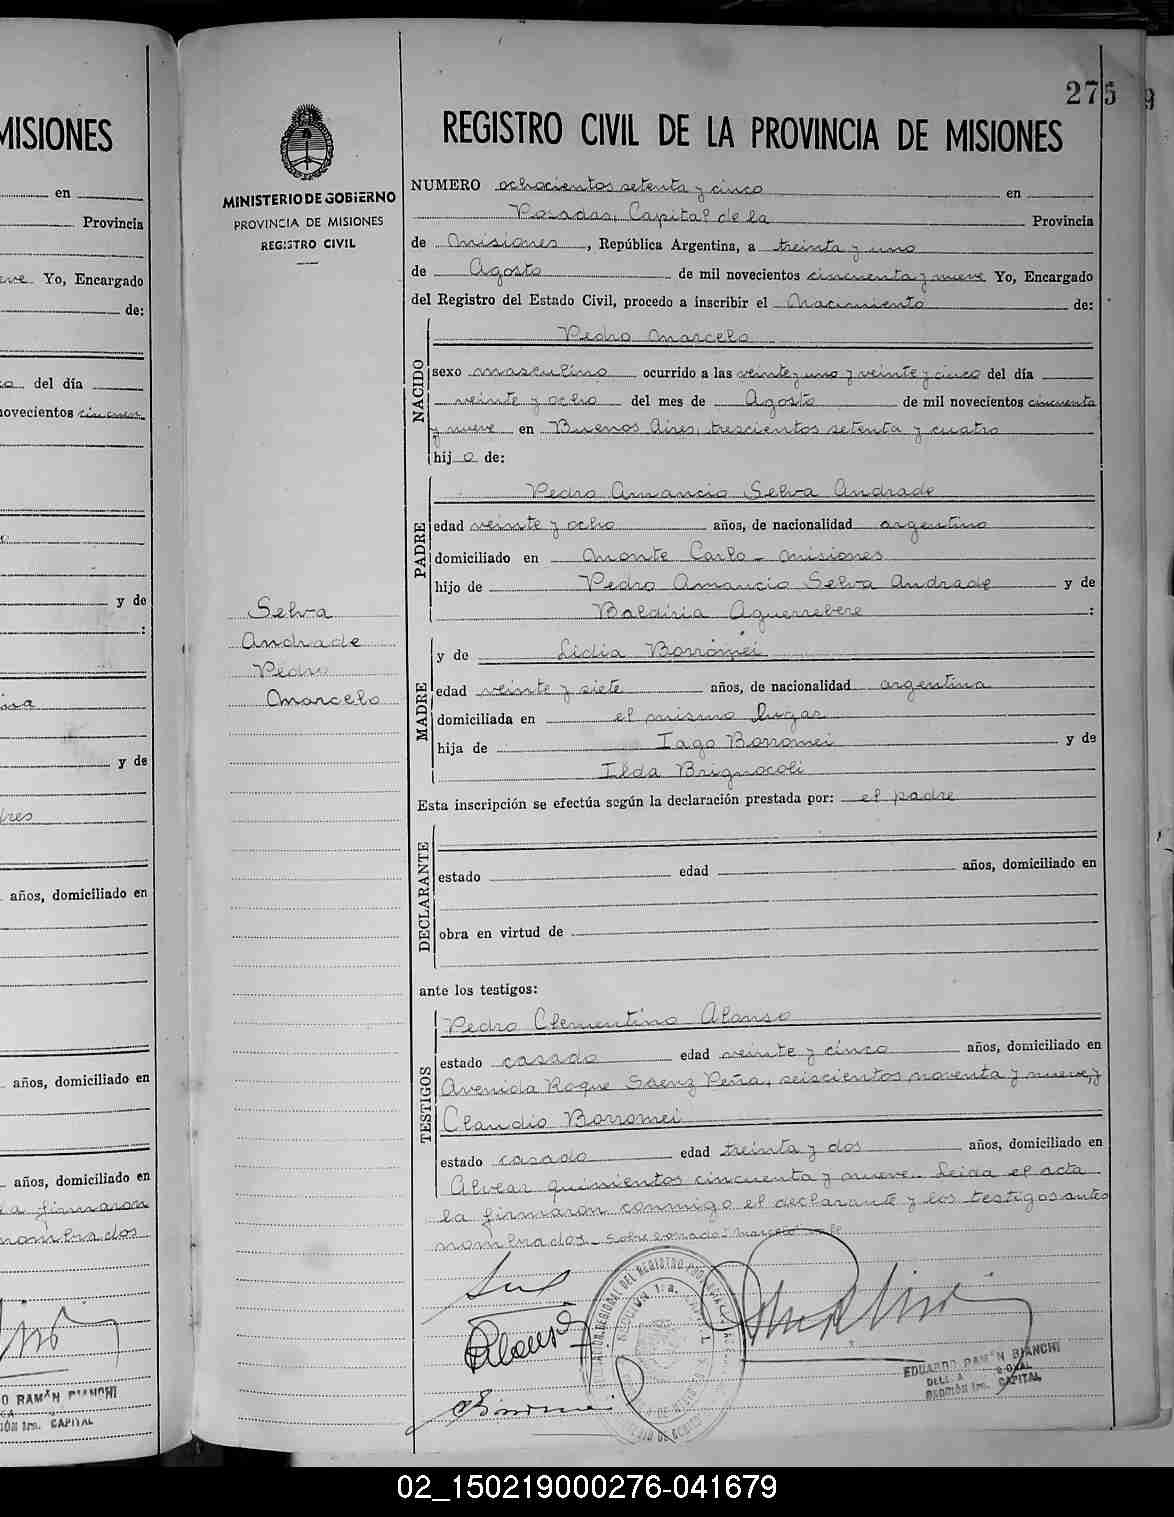 MISIONES
en
Provincia
Yo, Encargado
de:
del día
novecientos
y de
:
y de
años, domiciliado en
años, domiciliado en
años, domiciliado en
firmaron
nombrados
275
9
REGISTRO CIVIL DE LA PROVINCIA DE MISIONES
MINISTERIO DE GOBIERNO
PROVINCIA DE MISIONES
REGISTRO CIVIL
Selva
Andrade
Pedro
Marcelo
NUMERO ochocientos setenta y cinco en
Posadas, Capital de la Provincia
de Misiones, República Argentina, a treinta y uno
de Agosto de mil novecientos cincuenta y nueve Yo, Encargado
del Registro del Estado Civil, procedo a inscribir el Nacimiento de:
NACIDO
Pedro Marcelo
sexo masculino ocurrido a las veinte y uno y veinte y cinco del día
veinte y ocho del mes de Agosto de mil novecientos cincuenta
y nueve en Buenos Aires, trescientos setenta y cuatro
hij o de:
PADRE
Pedro Amancio Selva Andrade
edad veinte y ocho años, de nacionalidad argentino
domiciliado en Monte Carlo - Misiones
hijo de Pedro Amancio Selva Andrade y de
Baldiria Aguerrebere :
MADRE
y de Lidia Borromei
edad veinte y siete años, de nacionalidad argentina
domiciliada en el mismo lugar
hija de Iago Borromei y de
Ilda Brignocoli
Esta inscripción se efectúa según la declaración prestada por: el padre
DECLARANTE
estado edad años, domiciliado en
obra en virtud de
ante los testigos:
TESTIGOS
Pedro Clementino Alonso
estado casado edad veinte y cinco años, domiciliado en
Avenida Roque Saenz Peña, seiscientos noventa y nueve, y
Claudio Borromei
estado casado edad treinta y dos años, domiciliado en
Alvear quinientos cincuenta y nueve.. Leida el acta
la firmaron conmigo el declarante y los testigos antes
nombrados. - Sobre borrado: Marcelo vale
Alonso
EDUARDO RAMÓN BIANCHI
SECCIÓN 1ra. CAPITAL
02_150219000276-041679